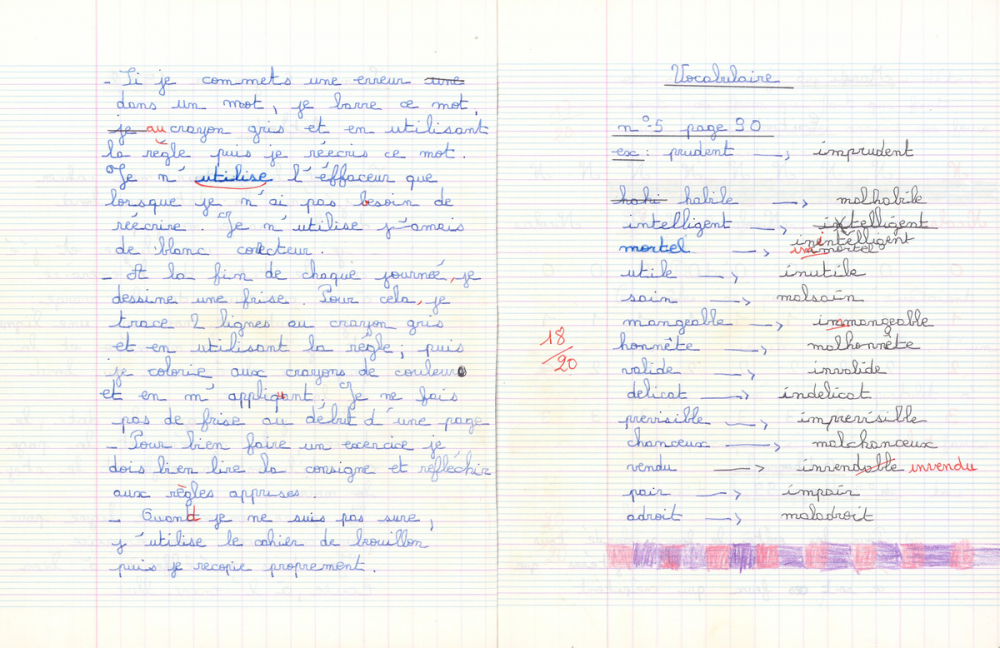 - Si je commets une erreur une
dans un mot, je barre ce mot,
je au crayon gris et en utilisant
la règle puis je réécris ce mot.
Je n'utilise l'éffaceur que
lorsque je n'ai pas besoin de
réécrire. Je n'utilise jamais
de blanc correcteur.
- At la fin de chaque journée, je
dessine une frise. Pour cela, je
trace 2 lignes au crayon gris
et en utilisant la règle ; puis
je colorie aux crayons de couleur
et en m'appliquant. Je ne fais
pas de frise au début d'une page
- Pour bien faire un exercice je
dois bien lire la consigne et réfléchir
aux règles apprises.
- Quand je ne suis pas sure,
j'utilise le cahier de brouillon
puis je recopie proprement.
Vocabulaire
n°5 page 90
ex : prudent → imprudent
habi habile → malhabile
intelligent → intelligent
inintelligent
mortel → immortel
utile → inutile
sain → malsain
mangeable → immangeable
18/20
honnête → malhonnête
valide → invalide
délicat → indélicat
prévisible → imprévisible
chanceux → malchanceux
vendu → invendable invendu
pair → impair
adroit → maladroit